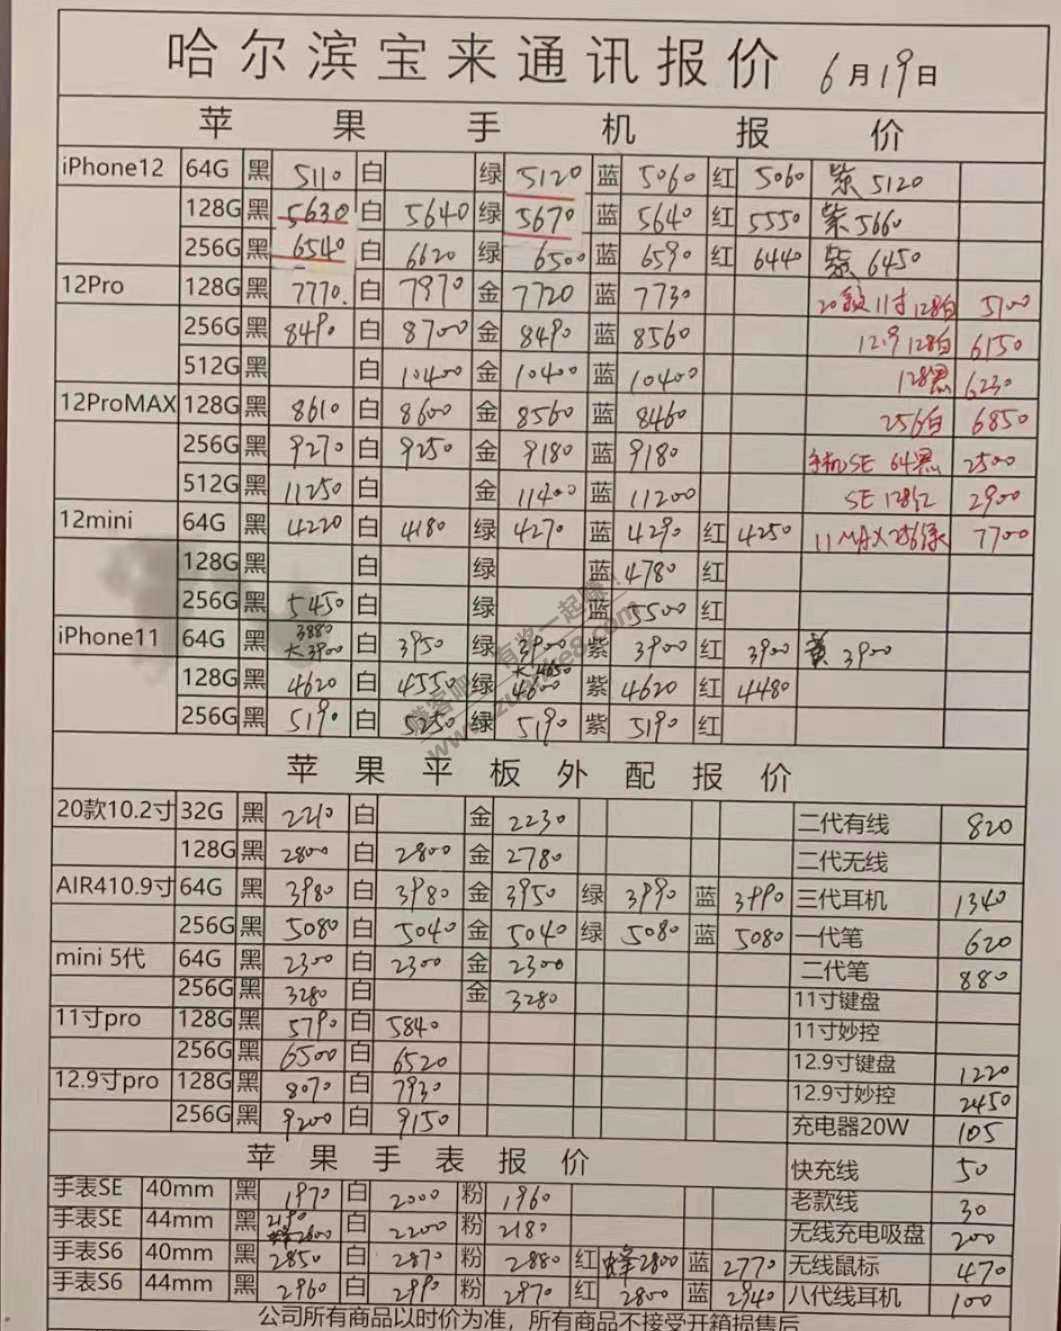 哈尔滨宝来通讯报价 6月19日
苹果手机报价
iPhone12 64G 黑 5110 白 绿 5120 蓝 5060 红 5060 紫 5120
128G 黑 5630 白 5640 绿 5670 蓝 5640 红 5550 紫 5660
256G 黑 6540 白 6620 绿 6500 蓝 6590 红 6440 紫 6450
12Pro 128G 黑 7770 白 7970 金 7720 蓝 7730 20款11寸128白 5700
256G 黑 8490 白 8700 金 8490 蓝 8560 12.9 128白 6150
512G 黑 白 10400 金 10400 蓝 10400 128黑 6230
12ProMAX 128G 黑 8610 白 8600 金 8560 蓝 8460 256白 6850
256G 黑 9270 白 9250 金 9180 蓝 9180 手机SE 64黑 2500
512G 黑 11250 白 金 11400 蓝 11200 SE 128红 2900
12mini 64G 黑 4220 白 4180 绿 4270 蓝 4290 红 4250 11 MAX 256绿 7700
128G 黑 白 绿 蓝 4780 红
256G 黑 5450 白 绿 蓝 5500 红
iPhone11 64G 黑 3880 大3900 白 3950 绿 3900 紫 3900 红 3900 黄 3900
128G 黑 4620 白 4550 绿 大4650 4600 紫 4620 红 4480
256G 黑 5190 白 5250 绿 5190 紫 5190 红
赚客吧，有奖一起赚！
www.zuanke8.com
苹果平板外配报价
20款10.2寸 32G 黑 2210 白 金 2230 二代有线 820
128G 黑 2800 白 2800 金 2780 二代无线
AIR410.9寸 64G 黑 3980 白 3980 金 3950 绿 3990 蓝 3990 三代耳机 1340
256G 黑 5080 白 5040 金 5040 绿 5080 蓝 5080 一代笔 620
mini 5代 64G 黑 2300 白 2300 金 2300 二代笔 880
256G 黑 3280 白 金 3280 11寸键盘
11寸pro 128G 黑 5790 白 5840 11寸妙控
256G 黑 6500 白 6520 12.9寸键盘 1220
12.9寸pro 128G 黑 8070 白 7930 12.9寸妙控 2450
256G 黑 9200 白 9150 充电器20W 105
苹果手表报价 快充线 50
手表SE 40mm 黑 1970 白 2000 粉 1960 老款线 30
手表SE 44mm 黑 2190 蜂2600 白 2200 粉 2180 无线充电吸盘 200
手表S6 40mm 黑 2850 白 2870 粉 2880 红 蜂2800 蓝 2770 无线鼠标 470
手表S6 44mm 黑 2960 白 2990 粉 2970 红 2800 蓝 2940 八代线耳机 100
公司所有商品以时价为准，所有商品不接受开箱损售后